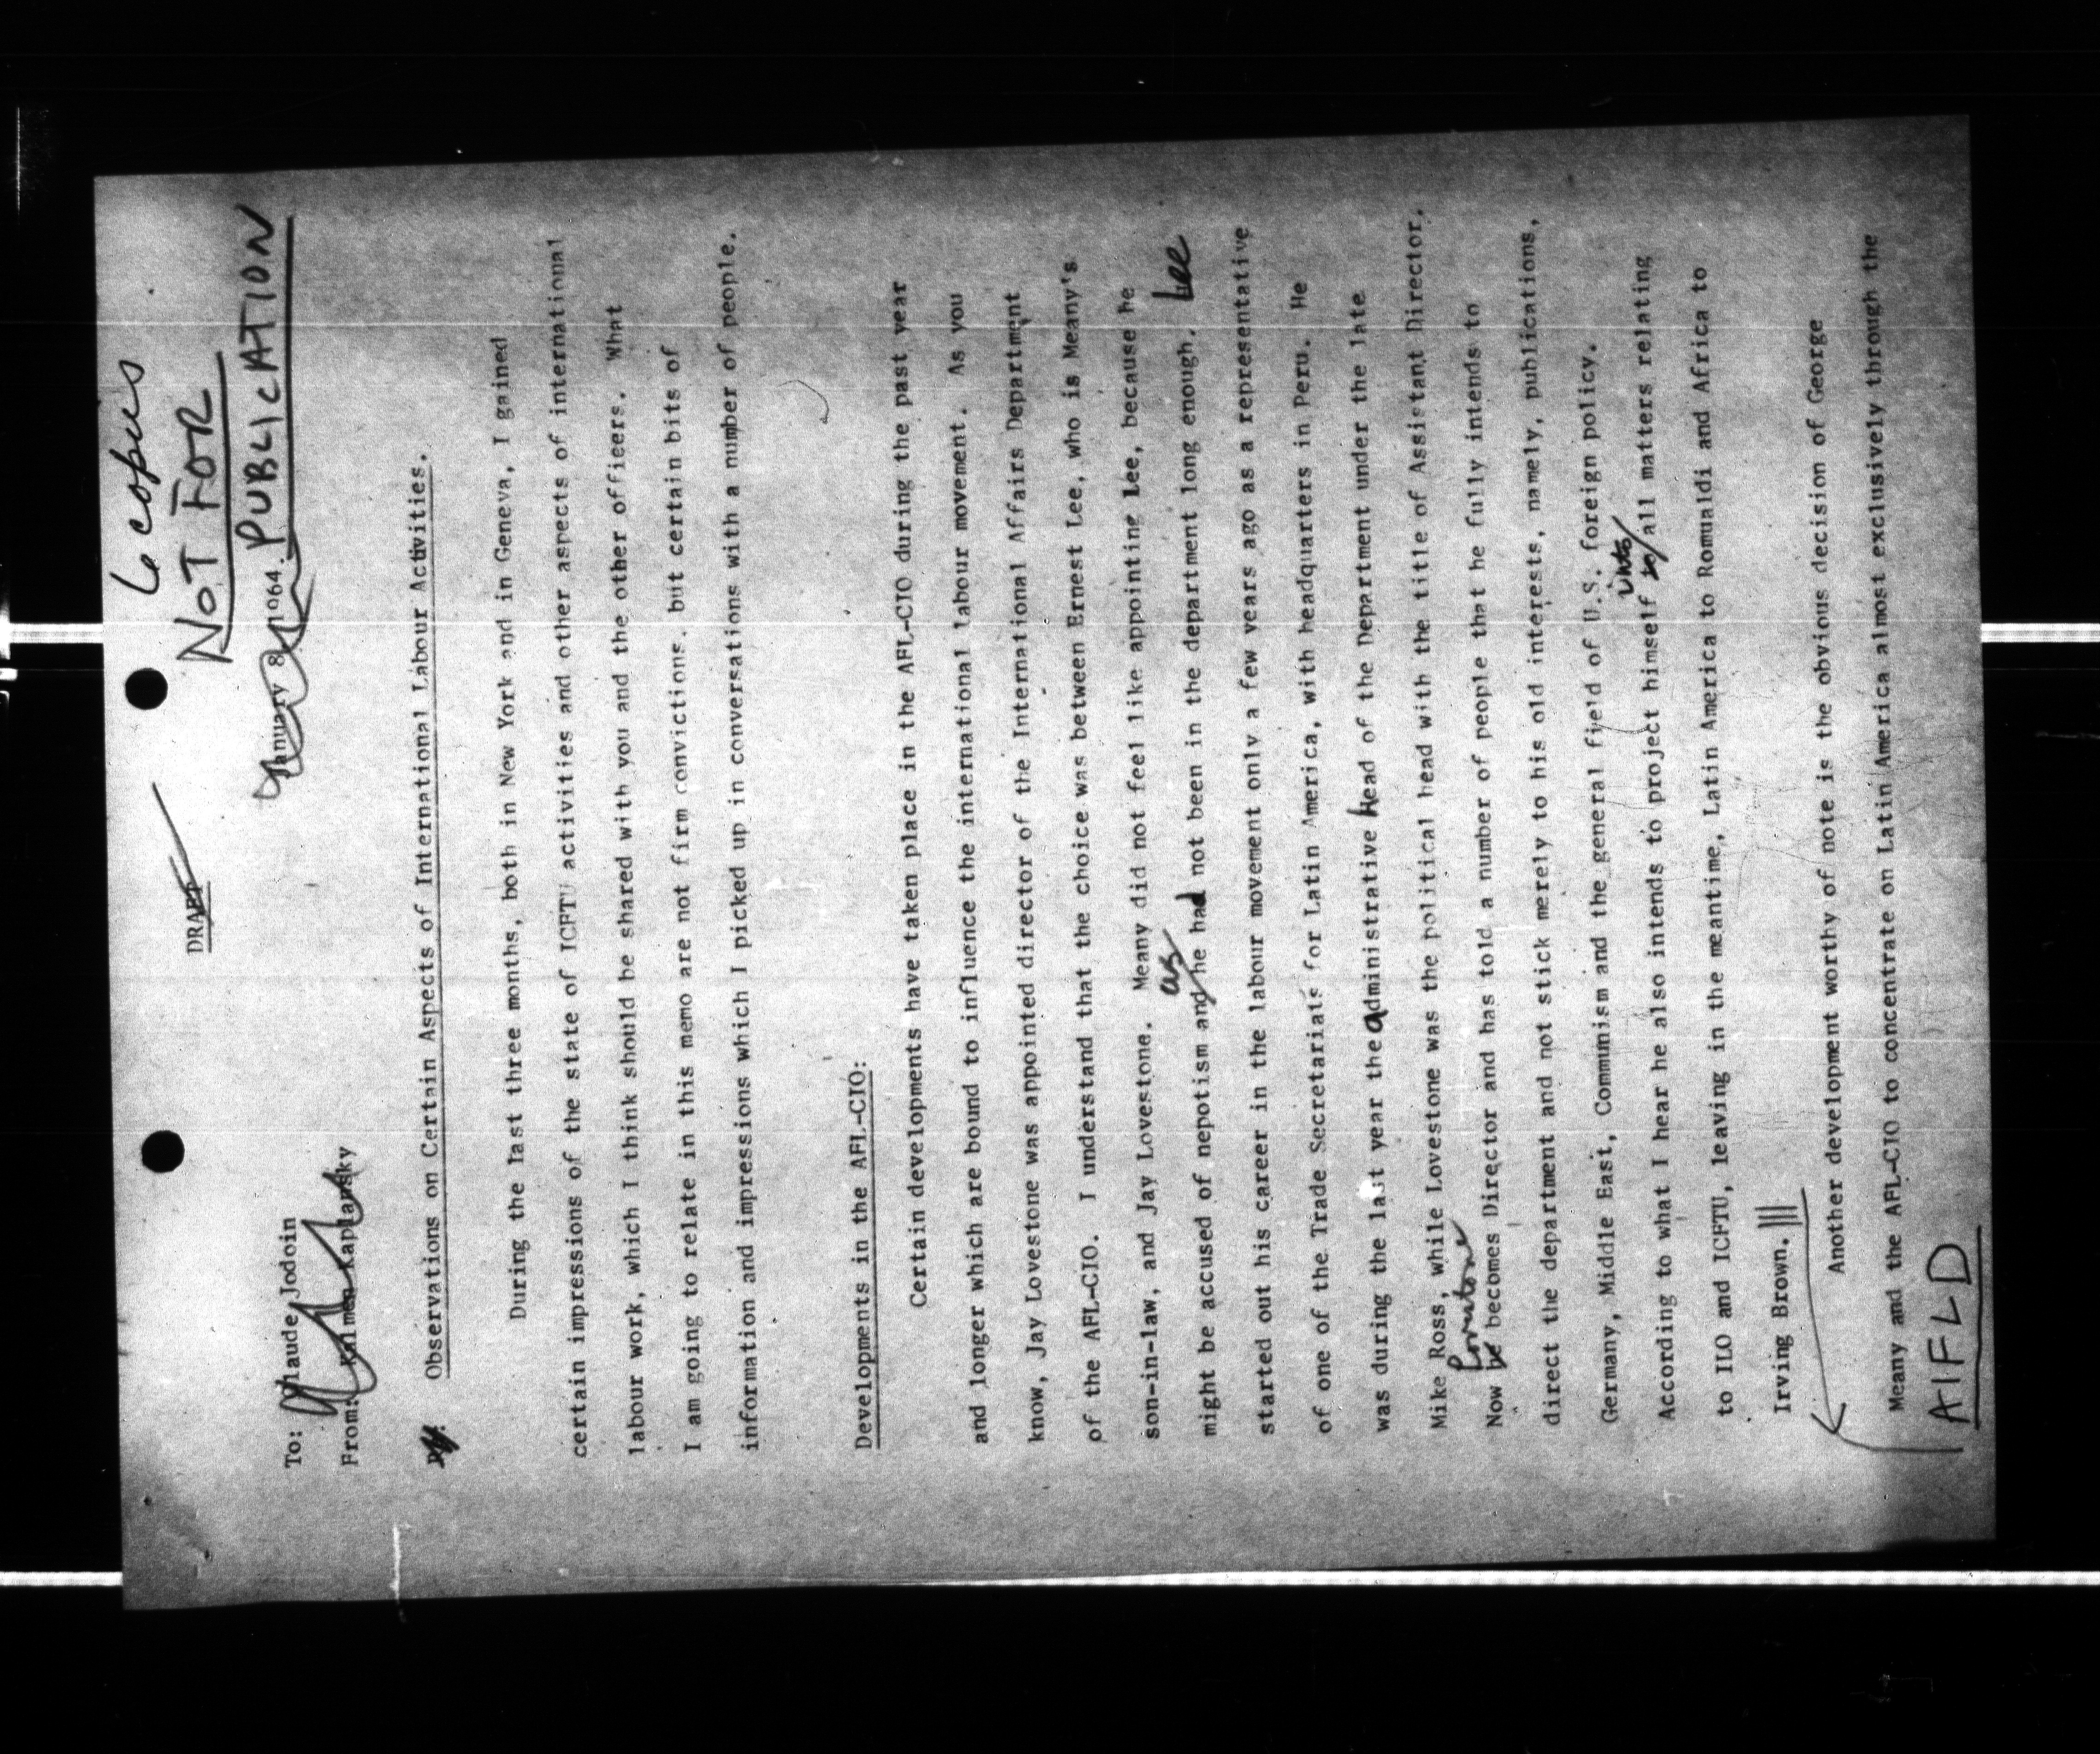 6 copies
NOT FOR
PUBLICATION
DRAFT
January 8, 1964.
To: Claude Jodoin
From: Kalmen Kaplansky
Observations on Certain Aspects of International Labour Activities.
During the last three months, both in New York and in Geneva, I gained
certain impressions of the state of ICFTU activities and other aspects of international
labour work, which I think should be shared with you and the other officers. What
I am going to relate in this memo are not firm convictions, but certain bits of
information and impressions which I picked up in conversations with a number of people.
Developments in the AFL-CIO:
Certain developments have taken place in the AFL-CIO during the past year
and longer which are bound to influence the international labour movement. As you
know, Jay Lovestone was appointed director of the International Affairs Department
of the AFL-CIO. I understand that the choice was between Ernest Lee, who is Meany's
son-in-law, and Jay Lovestone. Meany did not feel like appointing Lee, because he
might be accused of nepotism and as he had not been in the department long enough. Lee
started out his career in the labour movement only a few years ago as a representative
of one of the Trade Secretariats for Latin America, with headquarters in Peru. He
was during the last year the administrative head of the Department under the late
Mike Ross, while Lovestone was the political head with the title of Assistant Director.
Now he Lovestone becomes Director and has told a number of people that he fully intends to
direct the department and not stick merely to his old interests, namely, publications,
Germany, Middle East, Communism and the general field of U.S. foreign policy.
According to what I hear he also intends to project himself to into all matters relating
to ILO and ICFTU, leaving in the meantime, Latin America to Romualdi and Africa to
Irving Brown.
Another development worthy of note is the obvious decision of George
Meany and the AFL-CIO to concentrate on Latin America almost exclusively through the
AIFLD